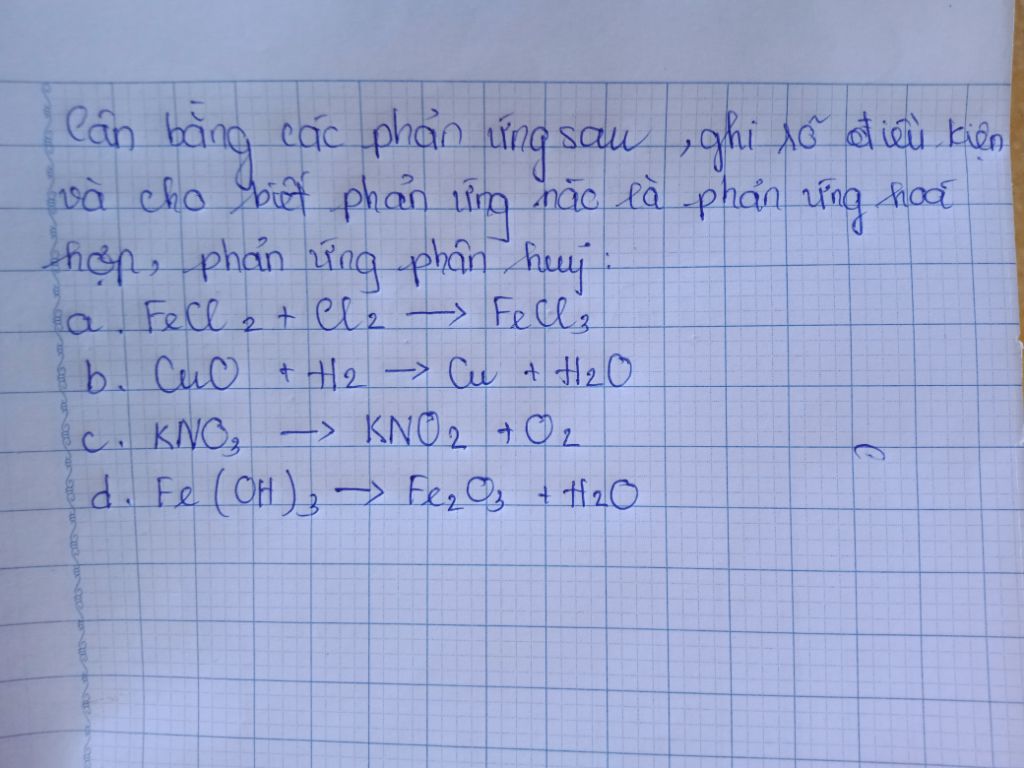 Cân bằng các phản ứng sau, ghi rõ điều kiện
và cho biết phản ứng nào là phản ứng hoá
hợp, phản ứng phân huỷ:
a. FeCl₂ + Cl₂ → FeCl₃
b. CuO + H₂ → Cu + H₂O
c. KNO₃ → KNO₂ + O₂
d. Fe(OH)₃ → Fe₂O₃ + H₂O